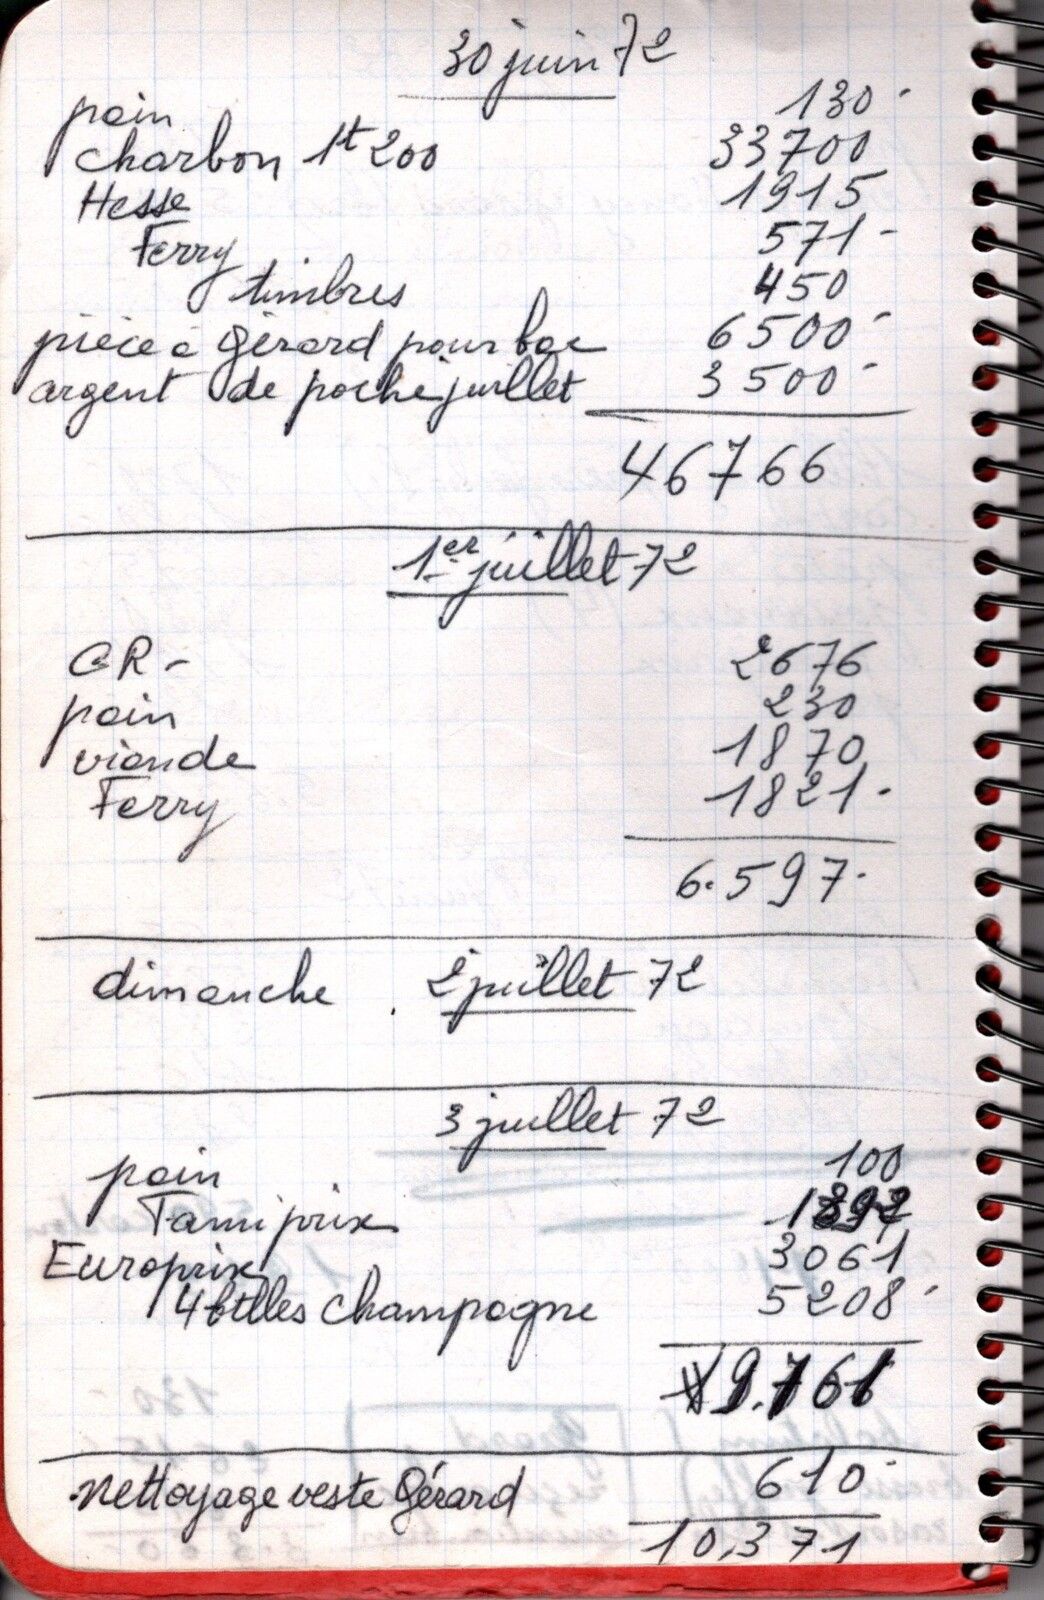 30 juin 72
pain 130-
charbon 1t 200 33700
Hesse 1915
Ferry 571-
timbres 450
pièce à Gérard pour bac 6500-
argent de poche juillet 3500-
46766
1er juillet 72
CR- 2676
pain 230
viande 1870
Ferry 1821-
6.597.
dimanche 2 juillet 72
3 juillet 72
pain 100
Famiprix 1392
Europrix 3061
4 btlles champagne 5208-
9.761
nettoyage veste Gérard 610-
10.371